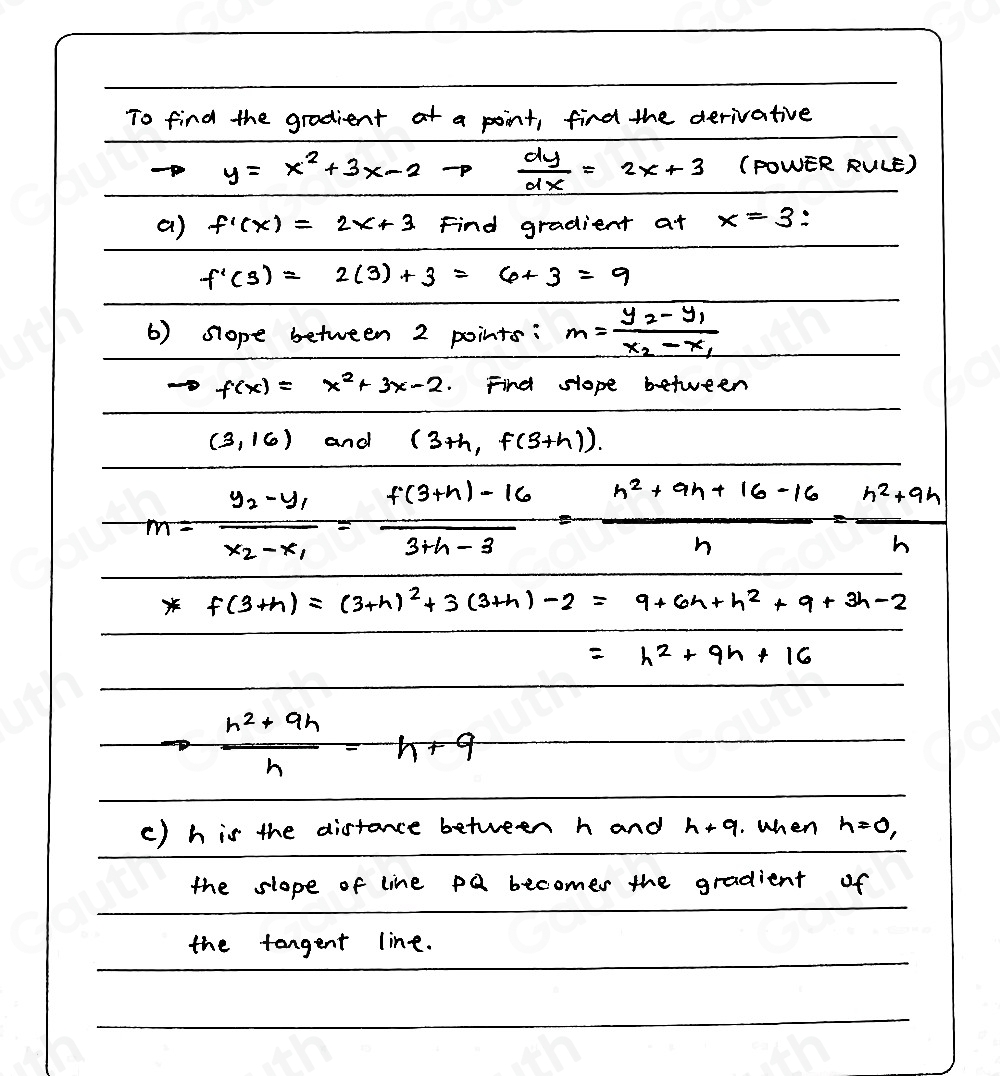 To find the gradient at a point, find the derivative
→ y = x² + 3x - 2 → dy/dx = 2x + 3 (POWER RULE)
a) f'(x) = 2x + 3 Find gradient at x = 3:
f'(3) = 2(3) + 3 = 6 + 3 = 9
b) slope between 2 points: m = (y₂ - y₁)/(x₂ - x₁)
→ f(x) = x² + 3x - 2. Find slope between
(3, 16) and (3+h, f(3+h)).
m = (y₂ - y₁)/(x₂ - x₁) = (f(3+h) - 16)/(3+h - 3) = (h² + 9h + 16 - 16)/h = (h² + 9h)/h
* f(3+h) = (3+h)² + 3(3+h) - 2 = 9 + 6h + h² + 9 + 3h - 2
= h² + 9h + 16
→ (h² + 9h)/h = h + 9
c) h is the distance between h and h+9. When h=0,
the slope of line PQ becomes the gradient of
the tangent line.
Gauth